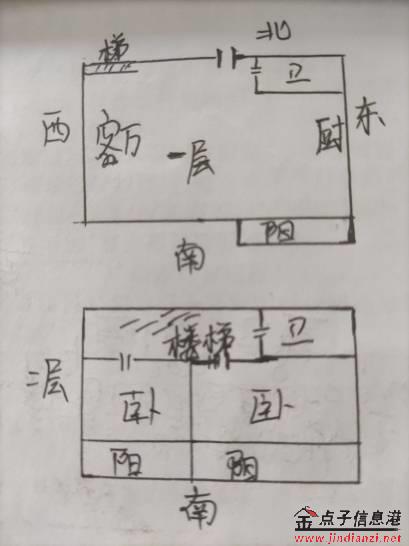 北
梯
卫
西
客厅
一层
厨
东
阳
南
二层
楼梯
卫
卧
卧
阳
阳
南
金点子信息港
www.jindianzi.net